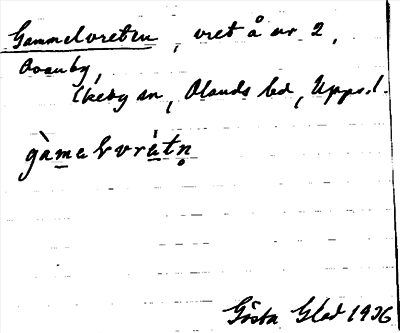 Gammelvreten, vret å nr 2,
Ovanby,
Ekeby sn, Olands hd, Upps. l.
gàmelvrètn̥
Gösta Glad 1936